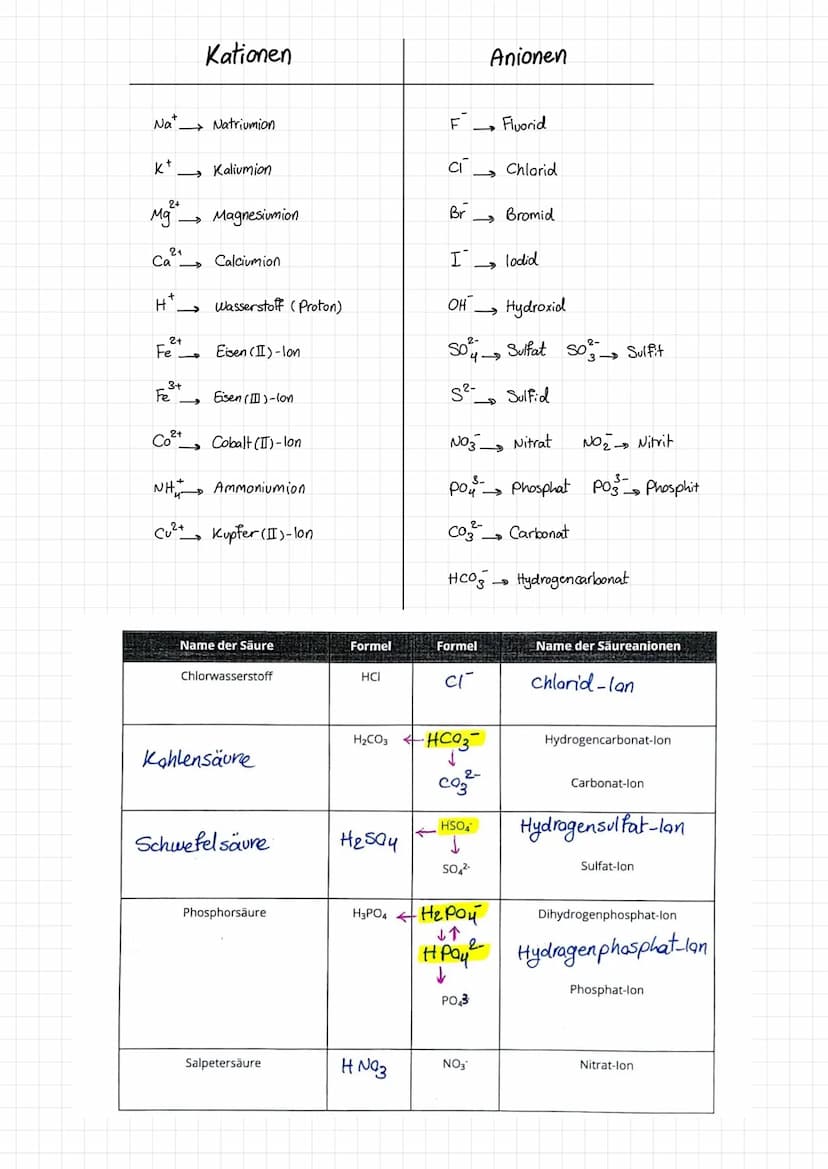 Kationen
Anionen
Na⁺ → Natriumion
F⁻ → Fluorid
K⁺ → Kaliumion
Cl⁻ → Chlorid
Mg²⁺ → Magnesiumion
Br⁻ → Bromid
Ca²⁺ → Calciumion
I⁻ → Iodid
H⁺ → Wasserstoff (Proton)
OH⁻ → Hydroxid
Fe²⁺ → Eisen(II)-Ion
SO₄²⁻ → Sulfat SO₃²⁻ → Sulfit
Fe³⁺ → Eisen(III)-Ion
S²⁻ → Sulfid
Co²⁺ → Cobalt(II)-Ion
NO₃⁻ → Nitrat NO₂⁻ → Nitrit
NH₄⁺ → Ammoniumion
PO₄³⁻ → Phosphat PO₃³⁻ → Phosphit
Cu²⁺ → Kupfer(II)-Ion
CO₃²⁻ → Carbonat
HCO₃⁻ → Hydrogencarbonat
Name der Säure Formel Formel Name der Säureanionen
Chlorwasserstoff HCl Cl⁻ Chlorid-Ion
Kohlensäure H₂CO₃ ← HCO₃⁻ Hydrogencarbonat-Ion
↓
CO₃²⁻ Carbonat-Ion
Schwefelsäure H₂SO₄ ← HSO₄⁻ Hydrogensulfat-Ion
↓
SO₄²⁻ Sulfat-Ion
Phosphorsäure H₃PO₄ ← H₂PO₄⁻ Dihydrogenphosphat-Ion
↓↑
HPO₄²⁻ Hydrogenphosphat-Ion
↓
PO₄³ Phosphat-Ion
Salpetersäure HNO₃ NO₃⁻ Nitrat-Ion